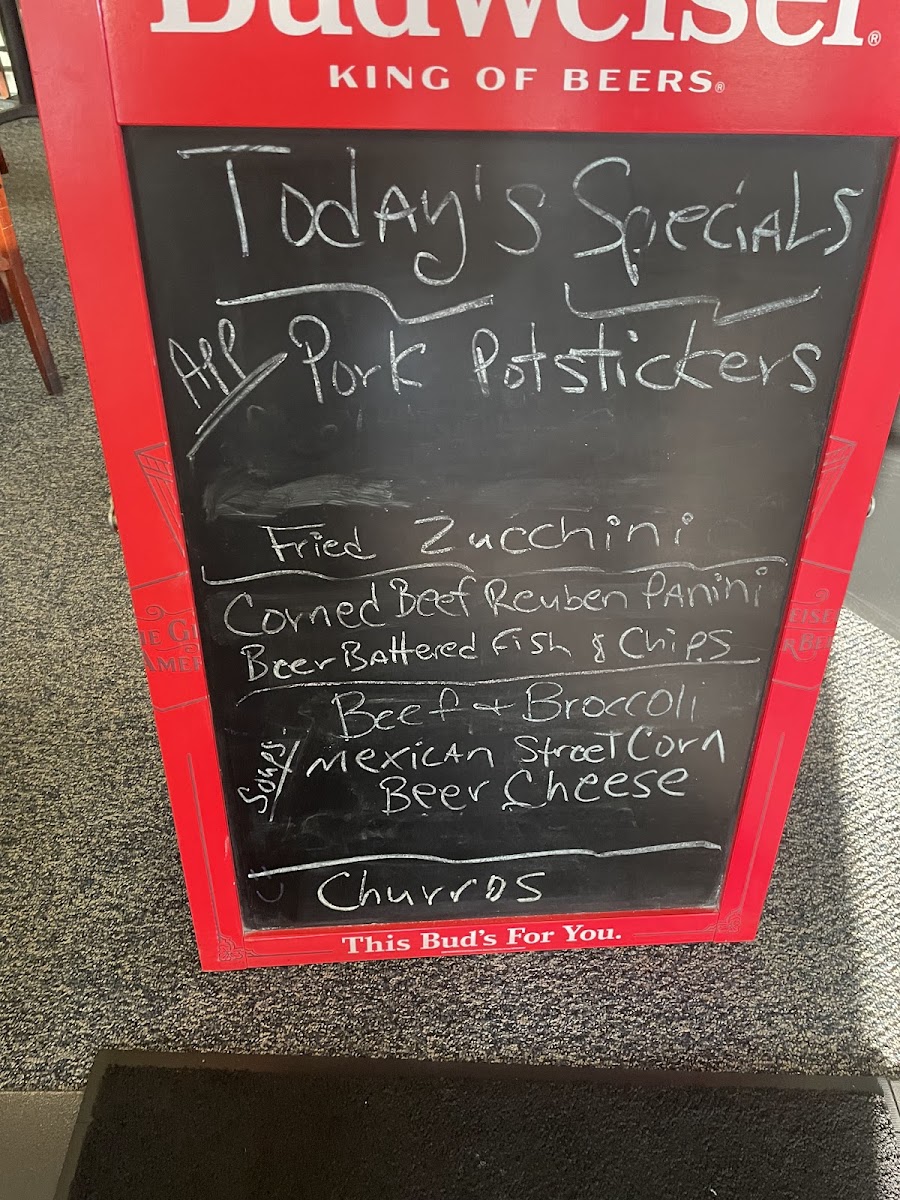 Budweiser®
KING OF BEERS®
Today's Specials
App/ Pork Potstickers
Fried Zucchini
Corned Beef Reuben Panini
Beer Battered Fish & Chips
Beef + Broccoli
Soups/ Mexican Street Corn
Beer Cheese
Churros
This Bud's For You.